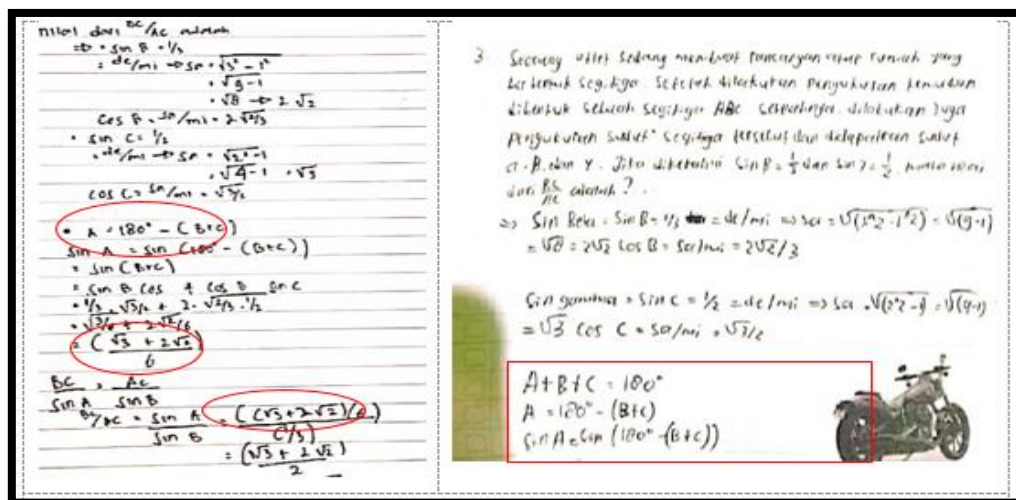 nilai dari BC/AC adalah
=> • sin B = 1/3
= de/mi => sa = √3² - 1²
= √9-1
= √8 => 2√2
cos B = sa/mi = 2√2/3
• sin C = 1/2
= de/mi => sa = √2² - 1
= √4-1 = √3
cos C = sa/mi = √3/2
• A = 180° - (B+C)
sin A = sin (180° - (B+C))
= sin (B+C)
= sin B cos + cos B sin C
= 1/3 . √3/2 + 2 . √2/3 . 1/2
= √3/6 + 2√2/6
= (√3 + 2√2)
6
BC = AC
sin A sin B
BC/AC = sin A = ((√3+2√2)(6)
sin B (1/3)
= (√3 + 2√2)
2
3 Seorang sedang membuat rancangan atap rumah yang
berbentuk segitiga. Setelah dilakukan pengukuran kemudian
dibentuk sebuah segitiga ABC. dilakukan juga
pengukuran sudut segitiga tersebut dan didapatkan sudut
α, β, dan γ. Jika diketahui sin β = 1/3 dan sin γ = 1/2, maka
dari BC/AC adalah?
=> Sin Beta = Sin B = 1/3 = de/mi => sa = √(3^2 - 1^2) = √(9-1)
= √8 = 2√2 cos B = sa/mi = 2√2/3
Sin gamma = Sin C = 1/2 = de/mi => sa = √(2^2-1) = √(4-1)
= √3 cos C = sa/mi = √3/2
A+B+C = 180°
A = 180° - (B+C)
sin A = sin (180° - (B+C))